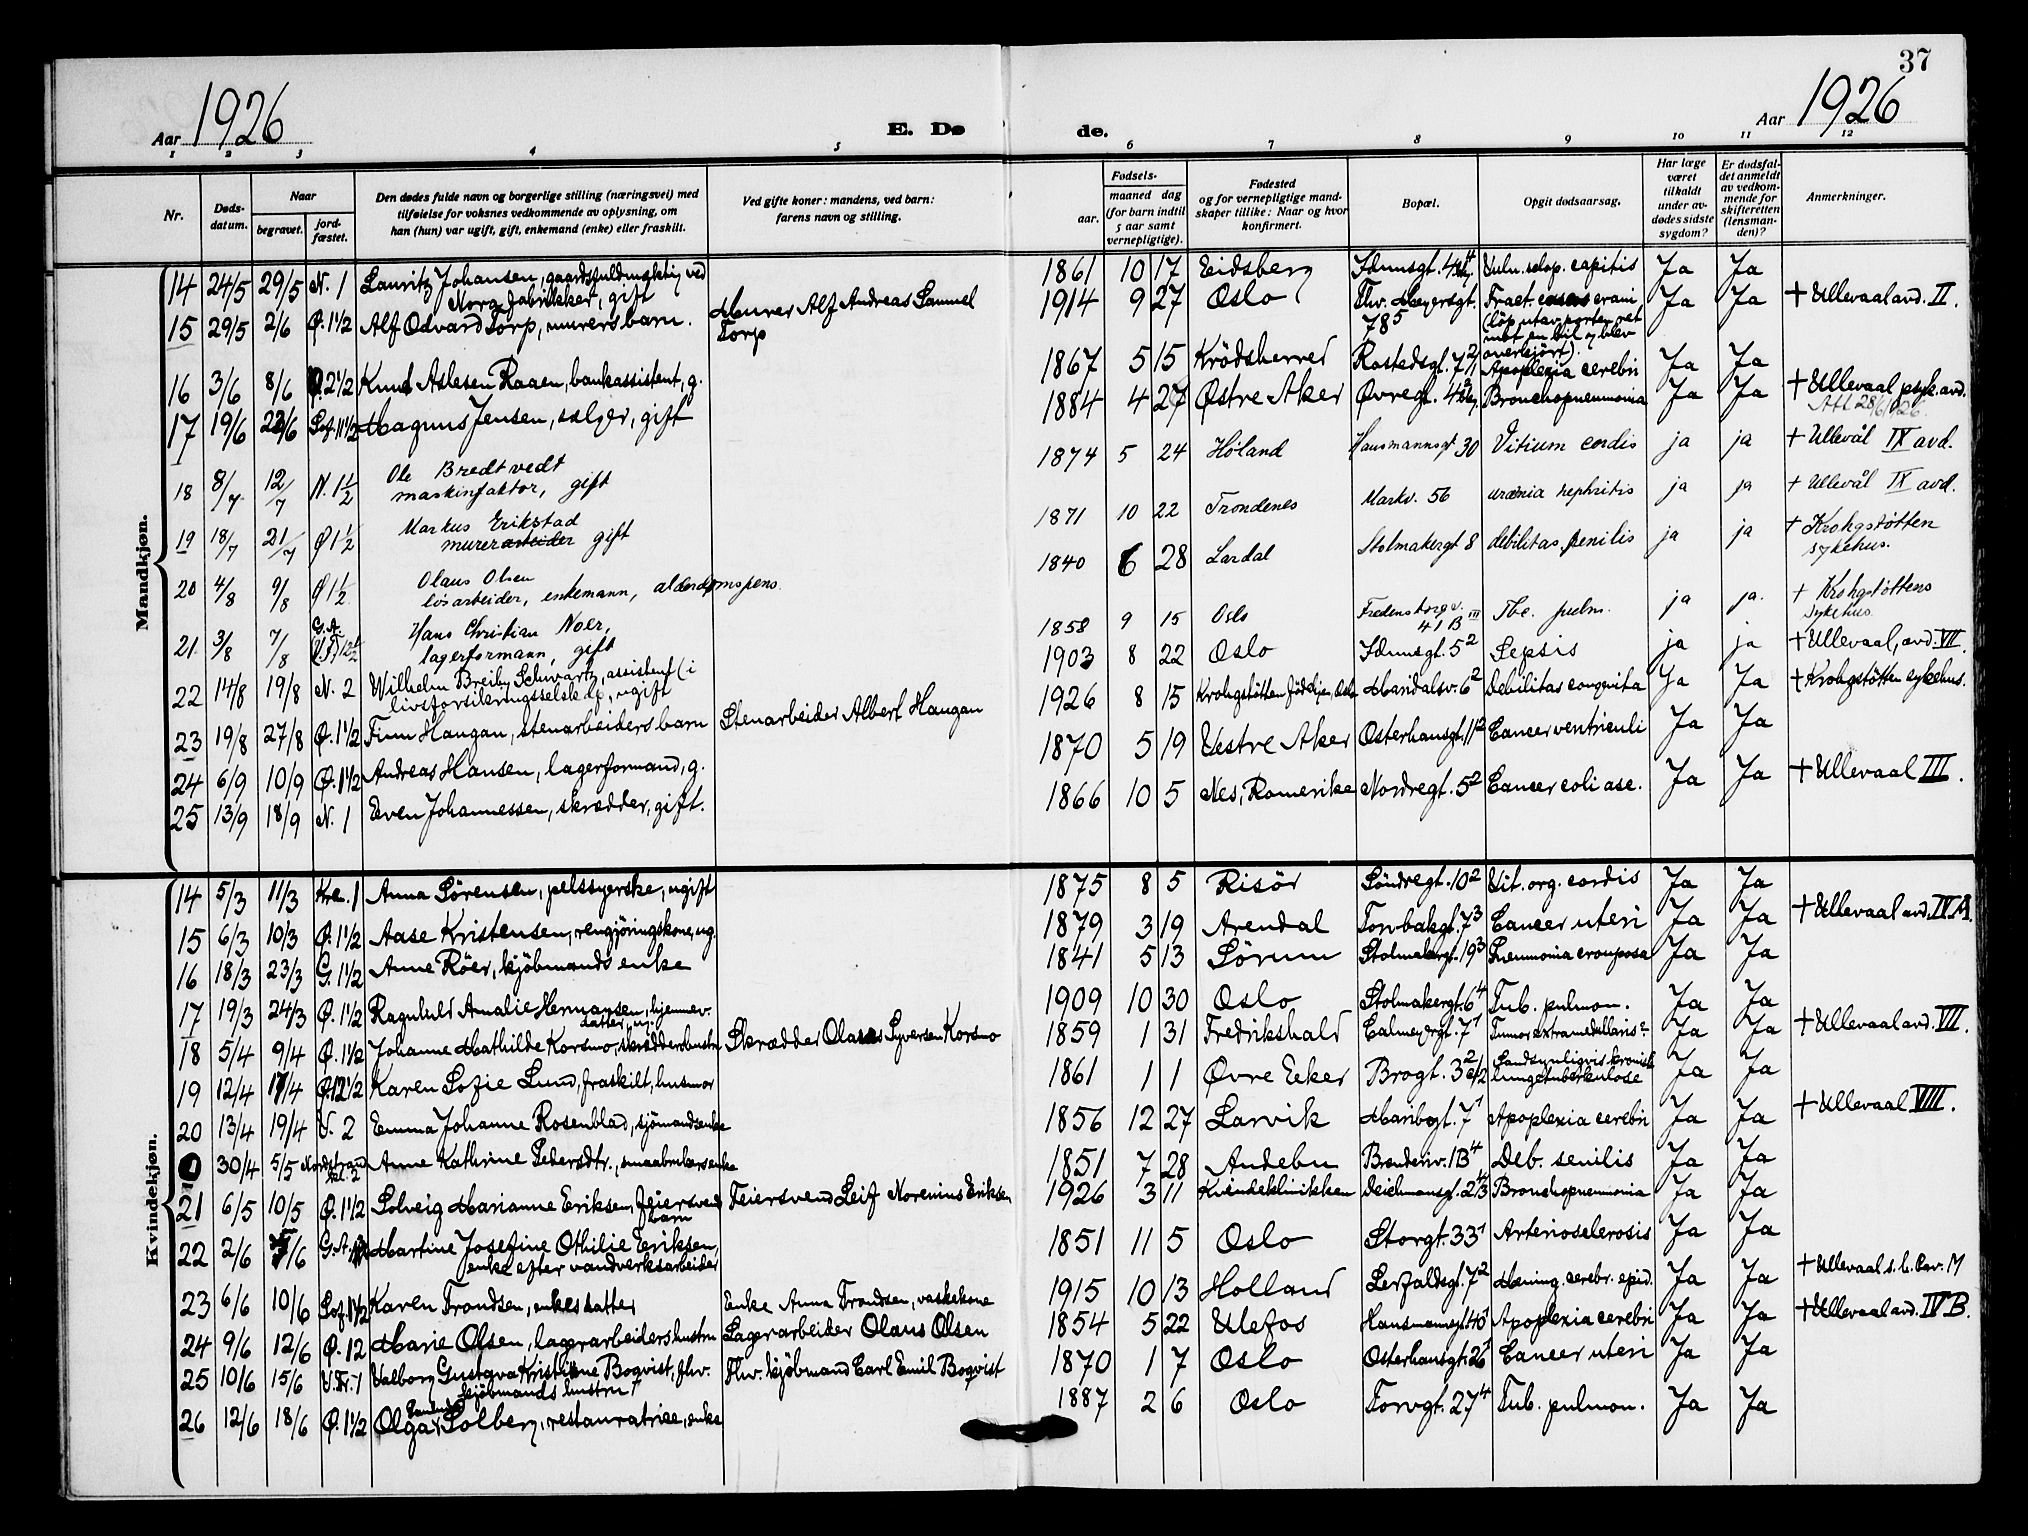 37
Aar 1926
E. Dø
de.
Aar 1926
1 2 3 4 5 6 7 8 9 10 11 12
Nr.
Døds-
datum.
Naar
begravet.
jord-
fæstet.
Den dødes fulde navn og borgerlige stilling (næringsvei) med
tilføielse for voksnes vedkommende av oplysning, om
han (hun) var ugift, gift, enkemand (enke) eller fraskilt.
Ved gifte koner: mandens, ved barn:
farens navn og stilling.
Fødsels-
aar.
maaned dag
(for barn indtil
5 aar samt
vernepligtige).
Fødested
og for vernepligtige mand-
skaper tillike: Naar og hvor
konfirmert.
Bopæl.
Opgit dødsaarsag.
Har læge
været
tilkaldt
under av-
dødes sidste
sygdom?
Er dødsfal-
det anmeldt
av vedkom-
mende for
skifteretten
(lensman-
den)?
Anmerkninger.
Mandkjøn.
14 24/5 29/5 N. 1 Lauritz Johansen, gaardsfuldmægtig ved
Norg. fabrikker, gift 1861 10 17 Eidsberg capitis Ja Ja
15 29/5 2/6 Ø. 1 1/2 Alf Odvard Torp, murers barn. Murer Alf Andreas Samuel
Torp 1914 9 27 Oslo Thv. Meyersgt.
78 5 Fract. cranii
(løp utav porten ret
mot en bil og blev
overkjørt). Ja Ja + Ullevaal avd. II.
16 3/6 8/6 Ø. 2 1/2 Knud Aslesen Raaen, bankassistent, g. 1867 5 15 Krödsherred Rostedsgt. 7 Apoplexia cerebri Ja Ja
17 19/6 23/6 Sof. 11 1/2 Magnus Jensen, sælger, gift 1884 4 27 Østre Aker Øvregt. Bronchopneumonia Ja Ja + Ullevaal psyk. avd.
Att. 28/6 1926.
18 8/7 12/7 N. 1 1/2 Ole Bredtvedt
maskinfaktor, gift 1874 5 24 Høland Hausmannsgt 30 Vitium cordis ja ja + Ullevål IX avd.
19 18/7 21/7 Ø 1 1/2 Markus Erikstad
murerarbeider gift 1871 10 22 Trondenes Markv. 56 uræmia nephritis ja ja + Ullevål IX avd.
20 4/8 9/8 Ø 1 1/2 Olaus Olsen
løsarbeider, enkemann, alderdomspens. 1840 6 28 Lardal Stolmakergt 8 debilitas senilis ja ja + Krohgstøtten
sykehus.
21 3/8 7/8 G.A. Hans Christian Noer,
lagerformann, gift 1858 9 15 Oslo Fredensborgv.
41 B III Tbc. pulm. ja ja. + Krohgstøttens
sykehus.
22 14/8 19/8 N. 2 Wilhelm Breiby Schwartz, assistent (i
livsforsikringsselskap), ugift 1903 8 22 Oslo Idunsgt. 5 2 Sepsis ja ja + Ullevaal, avd. VII.
23 19/8 27/8 Ø. 1 1/2 Finn Haugan, stenarbeiders barn Stenarbeider Albert Haugan 1926 8 15 Krohgstøtten födehjem, Oslo Maridalsv. 6 2 Debilitas congenita Ja Ja + Krohgstøtten sykehus.
24 6/9 10/9 Ø. 1 1/2 Andreas Hansen, lagerformand, g. 1870 5 19 Vestre Aker Osterhausgt. 11 2 Cancer ventriculi Ja Ja
25 13/9 18/9 N. 1 Even Johannessen, skrædder, gift. 1866 10 5 Nes, Romerike Nordregt. 5 2 Cancer coli asc. Ja Ja + Ullevaal III.
Kvindekjøn.
14 5/3 11/3 Kre. 1 Anna Sörensen, pelssyerske, ugift 1875 8 5 Risör Söndregt. 10 2 Vit. org. cordis Ja Ja
15 6/3 10/3 Ø. 1 1/2 Aase Kristensen, rengjøringskone, ug. 1879 3 19 Arendal Torvbakgt. 7 3 Cancer uteri Ja Ja + Ullevaal avd. IV A.
16 18/3 23/3 G. 1 1/2 Anne Röer, kjöbmands enke 1841 5 13 Sörum Stolmakergt. 19 3 Pneumonia crouposa Ja Ja
17 19/3 24/3 Ø. 1 1/2 Ragnhild Amalie Hermansen, hjemmev.
datter, ug. 1909 10 30 Oslo Stolmakergt. 6 4 Tub. pulmon. Ja Ja
18 5/4 9/4 Ø. 1 1/2 Johanne Mathilde Korsmo, skrædderhustru Skrædder Olaus Syversen Korsmo 1859 1 31 Fredrikshald Calmeyergt. 7 1 Tumor extramedullaris Ja Ja + Ullevaal avd. VII.
19 12/4 17/4 Ø. 12 1/2 Karen Sofie Lund, fraskilt, husmor 1861 1 1 Øvre Eeker Brogt. 3 Sandsynligvis kronisk
lungetuberkulose Ja Ja
20 13/4 19/4 V. 2 Emma Johanne Rosenblad, sjömandsenke 1856 12 27 Larvik Maribogt. 7 1 Apoplexia cerebri Ja Ja + Ullevaal VIII.
30/4 5/5 Nordstrand
kl. 2 Anne Kathrine Pedersdtr., smaabrukersenke 1851 7 28 Andebu Brenneriv. 1 B 4 Deb. senilis Ja Ja
21 6/5 10/5 Ø. 1 1/2 Solveig Marianne Eriksen, feiersvend
barn Feiersvend Leif Norenius Eriksen 1926 3 11 Kvindeklinikken Deichmansgt. Bronchopneumonia Ja Ja
22 2/6 7/6 G.A. Martine Josefine Othilie Eriksen,
enke efter vandverksarbeider 1851 11 5 Oslo Storgt. 33 1 Arteriosclerosis Ja Ja
23 6/6 10/6 Sof. 11 1/2 Karen Trondsen, enkes datter Enke Anna Trondsen, vaskekone 1915 10 13 Holland Lerfaldsgt. 7 2 Mening. cerebr. epid. Ja Ja + Ullevaal s. h. Pav. M
24 9/6 12/6 Ø. 12 Marie Olsen, lagerarbeiders hustru Lagerarbeider Olaus Olsen 1854 5 22 Ulefos Hausmannsgt. 40 1 Apoplexia cerebri Ja Ja + Ullevaal avd. IV B.
25 10/6 15/6 V. Fr. 1 Valborg Gustava Kristine Boqvist, fhv.
kjöbmands hustru Fhv. kjöbmand Carl Emil Boqvist 1870 1 7 Oslo Osterhausgt. 26 1 Cancer uteri Ja Ja
26 12/6 18/6 Ø. 1 1/2 Olga Solberg, restauratrice, enke 1887 2 6 Oslo Torvgt. 27 4 Tub. pulmon. Ja Ja